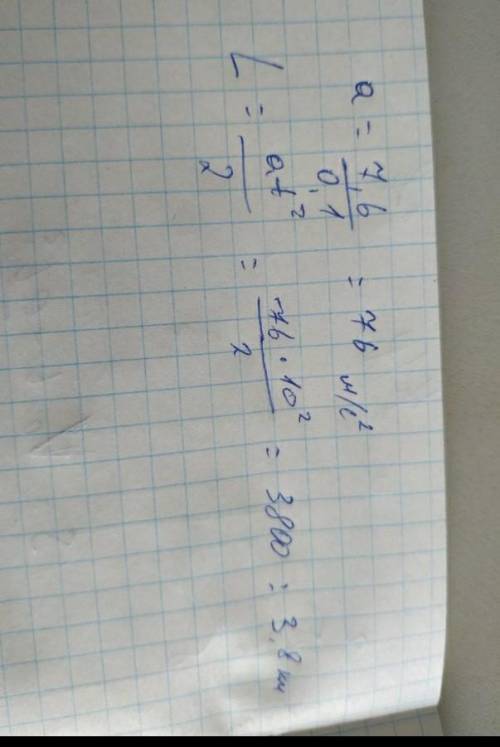 a = 7,6 / 0,1 = 76 м/с²
L = at² / 2 = 76 · 10² / 2 = 3800 = 3,8 км